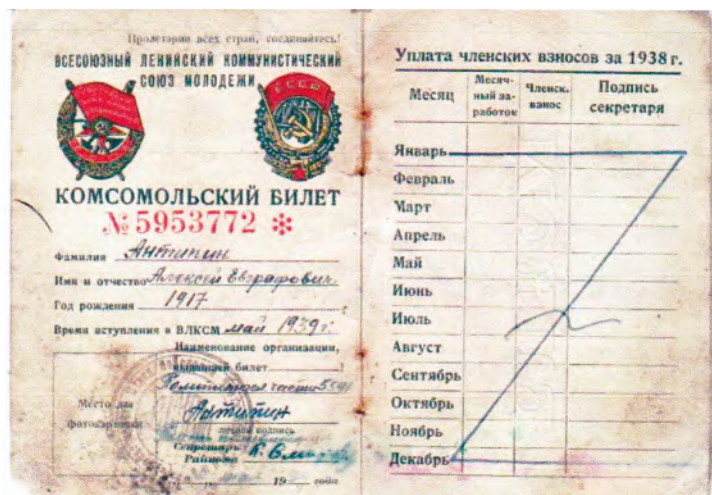 Пролетарии всех стран, соединяйтесь!
ВСЕСОЮЗНЫЙ ЛЕНИНСКИЙ КОММУНИСТИЧЕСКИЙ
СОЮЗ МОЛОДЕЖИ
СССР
КОМСОМОЛЬСКИЙ БИЛЕТ
№ 5953772 *
Фамилия Антипин
Имя и отчество Алексей Евграфович
Год рождения 1917 г
Время вступления в ВЛКСМ май 1939 г.
Наименование организации,
выдавшей билет
части
Место для
фотокарточки
Антипин
личная подпись
Секретарь
Райкома
19 года
Уплата членских взносов за 1938 г.
Месяц
Месяч-
ный за-
работок
Членск.
взнос
Подпись
секретаря
Январь
Февраль
Март
Апрель
Май
Июнь
Июль
Август
Сентябрь
Октябрь
Ноябрь
Декабрь